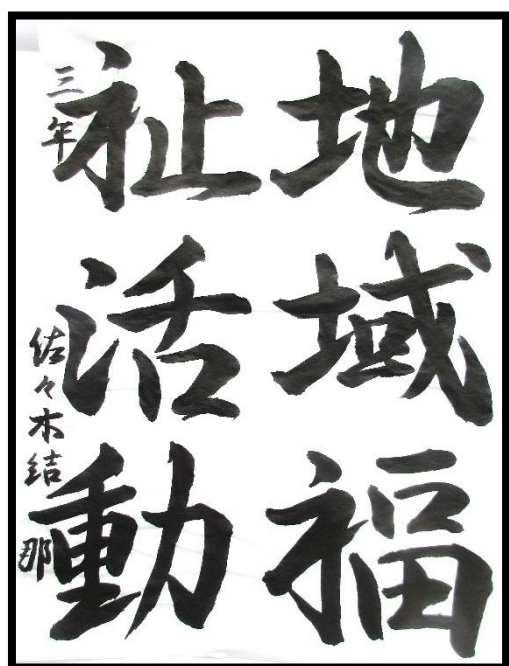 地域福
祉活動
三年 佐々木結那